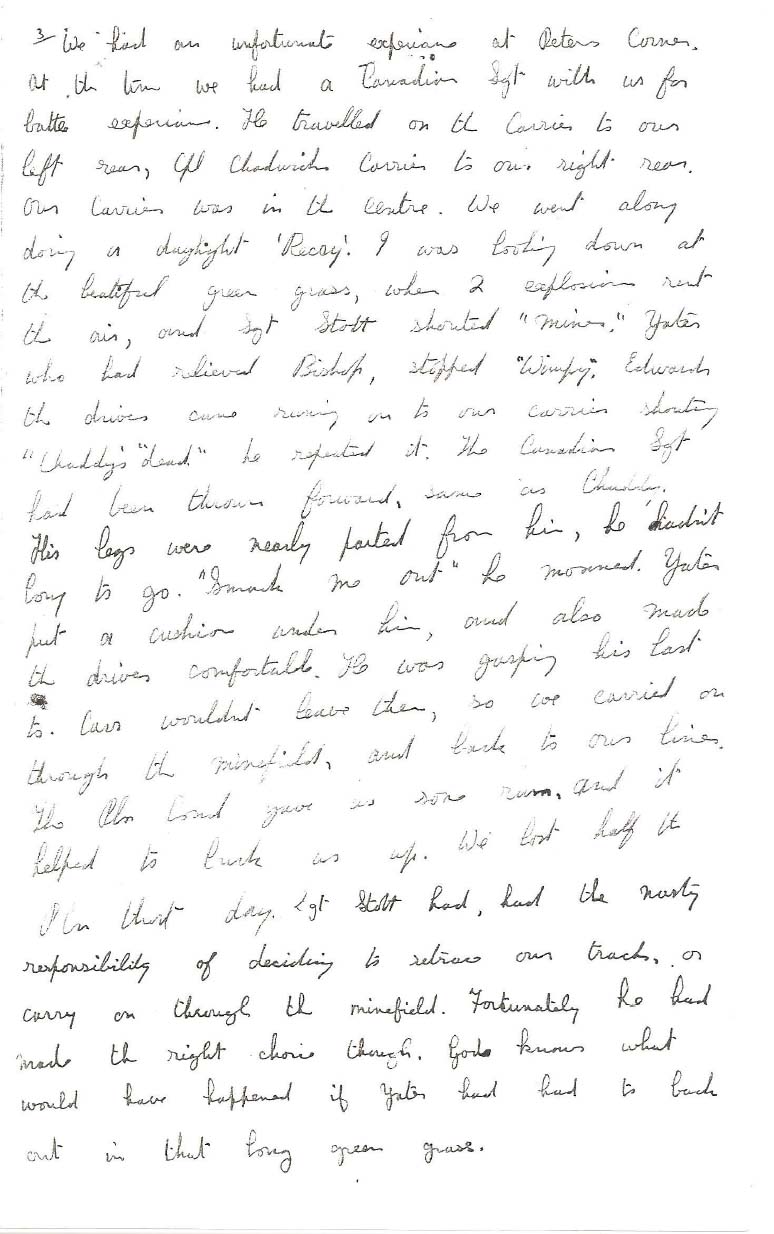 3/ We had an unfortunate experience at Peters Corner.
At the time we had a Canadian Sgt with us for
battle experience. He travelled on the Carrier to our
left rear, Cpl Chadwicks Carrier to our right rear.
Our Carrier was in the Centre. We went along
doing a daylight 'Reccy'. I was looking down at
the beautiful green grass, when 2 explosions rent
the air, and Sgt Stott shouted "Mines." Yates
who had relieved Bishop, stopped "Wimpy". Edwards
the driver came running on to our carrier shouting
"Chaddy's "dead" he repeated it. The Canadian Sgt
had been thrown forward, same as Chaddy.
His legs were nearly parted from him, he hadn't
long to go. "Smack me out" he moaned. Yates
put a cushion under him, and also made
the driver comfortable. He was gasping his last
to. Cars wouldn't leave them, so we carried on
through the minefield, and back to our lines.
The Pln Comd gave us some rum, and it
helped to buck us up. We lost half the
Pln that day. Sgt Stott had, had the nasty
responsibility of deciding to retrace our tracks, or
carry on through the minefield. Fortunately he had
made the right choice though. Gods knows what
would have happened if Yates had had to back
out in that long green grass.